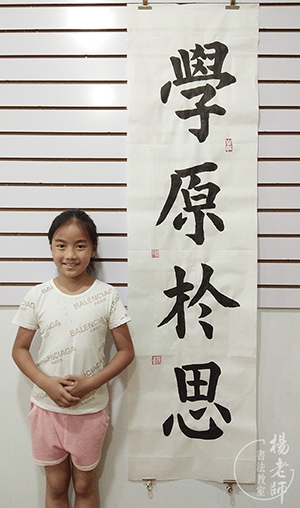 學原於思
BALENCIAGA
PARIS
BALENCIAGA
BALENCIAGA
楊老師
書法教室